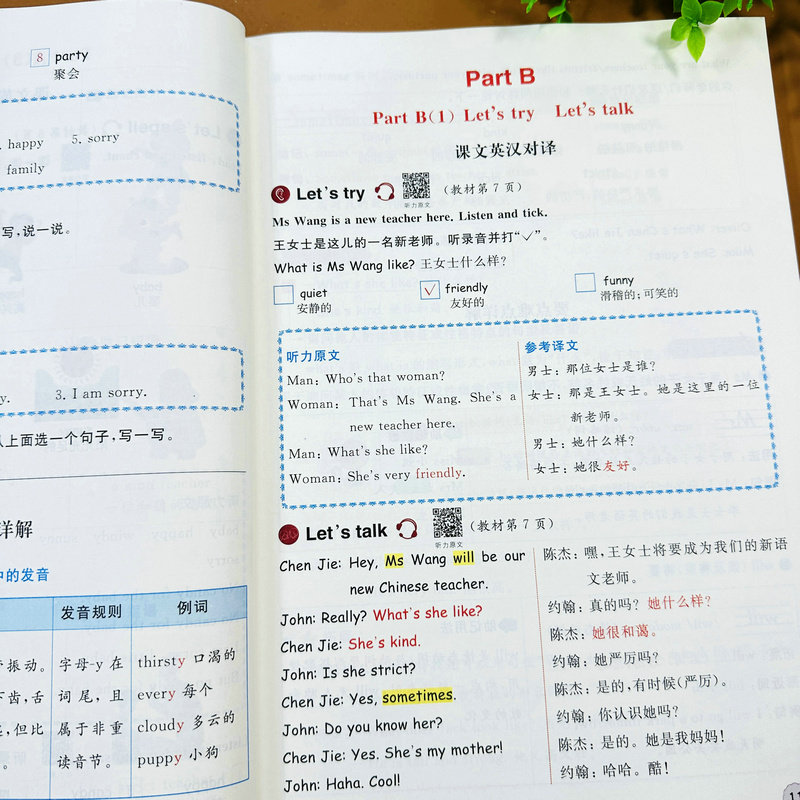 8 party
聚会
happy 5. sorry
family
写,说一说。
3. I am sorry.
从上面选一个句子,写一写。
详解
中的发音
发音规则 例词
振动。 字母-y 在 thirsty 口渴的
下齿,舌 词尾,且 every 每个
,但比 属于非重 cloudy 多云的
读音节。 puppy 小狗
Part B
Part B(1) Let's try Let's talk
课文英汉对译
Let's try (教材第 7 页)
听力原文
Ms Wang is a new teacher here. Listen and tick.
王女士是这儿的一名新老师。听录音并打“✓”。
What is Ms Wang like? 王女士什么样?
quiet ✓ friendly funny
安静的 友好的 滑稽的;可笑的
听力原文
Man: Who's that woman?
Woman: That's Ms Wang. She's a
new teacher here.
Man: What's she like?
Woman: She's very friendly.
参考译文
男士:那位女士是谁?
女士:那是王女士。她是这里的一位
新老师。
男士:她什么样?
女士:她很友好。
Let's talk (教材第 7 页)
听力原文
Chen Jie: Hey, Ms Wang will be our
new Chinese teacher.
John: Really? What's she like?
Chen Jie: She's kind.
John: Is she strict?
Chen Jie: Yes, sometimes.
John: Do you know her?
Chen Jie: Yes. She's my mother!
John: Haha. Cool!
陈杰:嘿,王女士将要成为我们的新语
文老师。
约翰:真的吗?她什么样?
陈杰:她很和蔼。
约翰:她严厉吗?
陈杰:是的,有时候(严厉)。
约翰:你认识她吗?
陈杰:是的。她是我妈妈!
约翰:哈哈。酷!